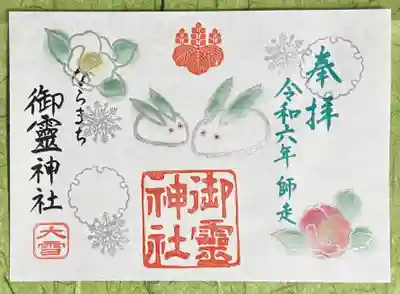 奉拝
令和六年 師走
御靈
神社
ならまち
御靈神社
大雪